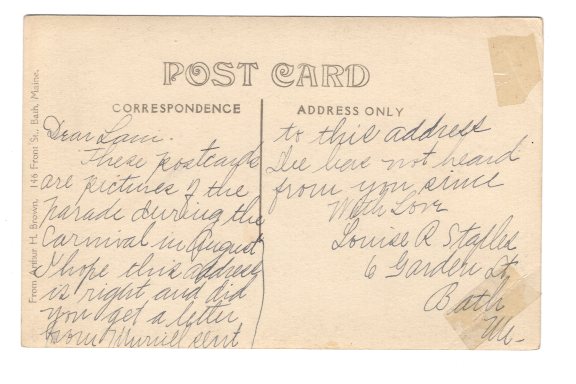 POST CARD
CORRESPONDENCE
ADDRESS ONLY
From Arthur H. Brown, 146 Front St., Bath, Maine.
Dear
These postcards
are pictures of the
parade during the
Carnival in August
I hope this address
is right and did
you get a letter
from Muriel sent
to this address
from you since
With Love
Louise R Staples
6 Garden St
Bath
Me-